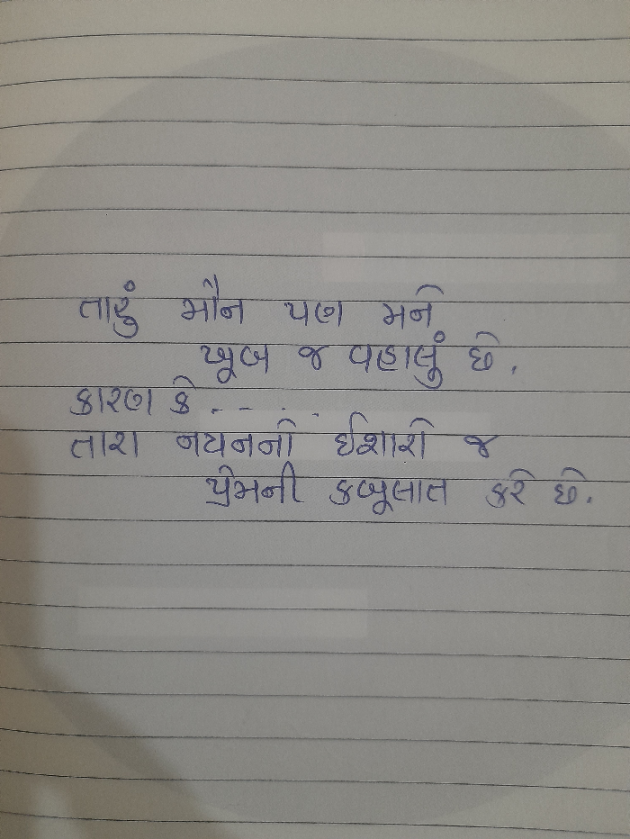 તારું મૌન પણ મને
ખૂબ જ વહાલું છે.
કારણ કે.....
તારા નયનનો ઈશારો જ
પ્રેમની કબૂલાત કરે છે.